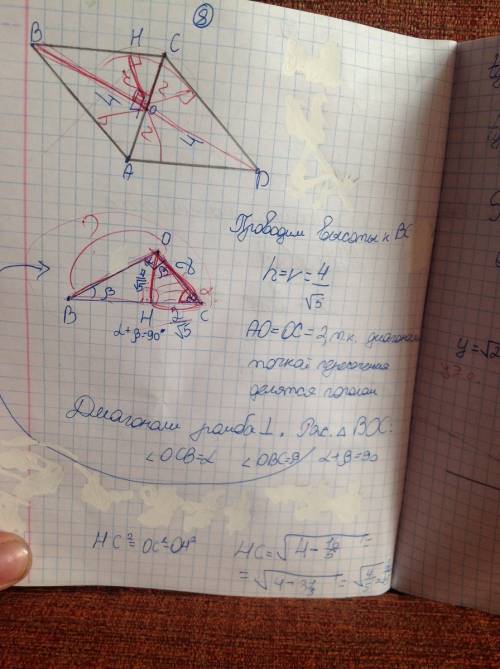 8
B
H
C
2
2
4
4
O
2
A
D
?
O
α
β
2
4/√5
β
α
B
H
2/√5
C
α+β=90°
Проводим высоты к BC
h=r=4/√5
AO=OC=2, т.к. диагонали
точкой пересечения
делятся пополам
Диагонали ромба ⊥. Рас. △ BOC:
∠OCB=α ∠OBC=β / α+β=90
HC²=OC²-OH²
HC=√(4-16/5)=
=√(4-3 1/5)=√(4/5)=
y=√2